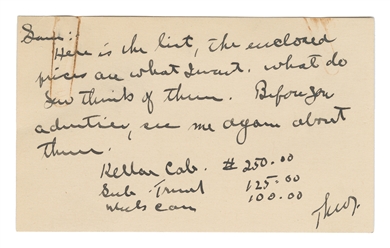 Here is the list, the enclosed
prices are what I want. what do
you think of them. Before you
advertise, see me again about
them.
Kellar Cab. # 250.00
Sub. Trunk 125.00
100.00